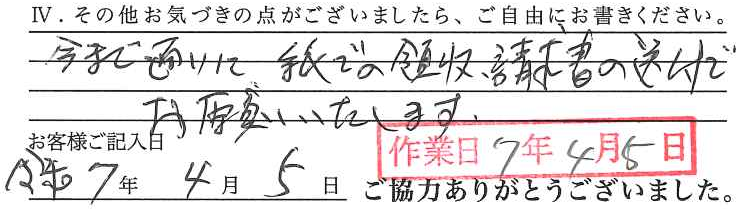 Ⅳ．その他お気づきの点がございましたら、ご自由にお書きください。
今まで通りに 紙での領収、請求書の送付で
お願いいたします。
お客様ご記入日
令和7年 4月 5日
作業日 7年 4月5日
ご協力ありがとうございました。